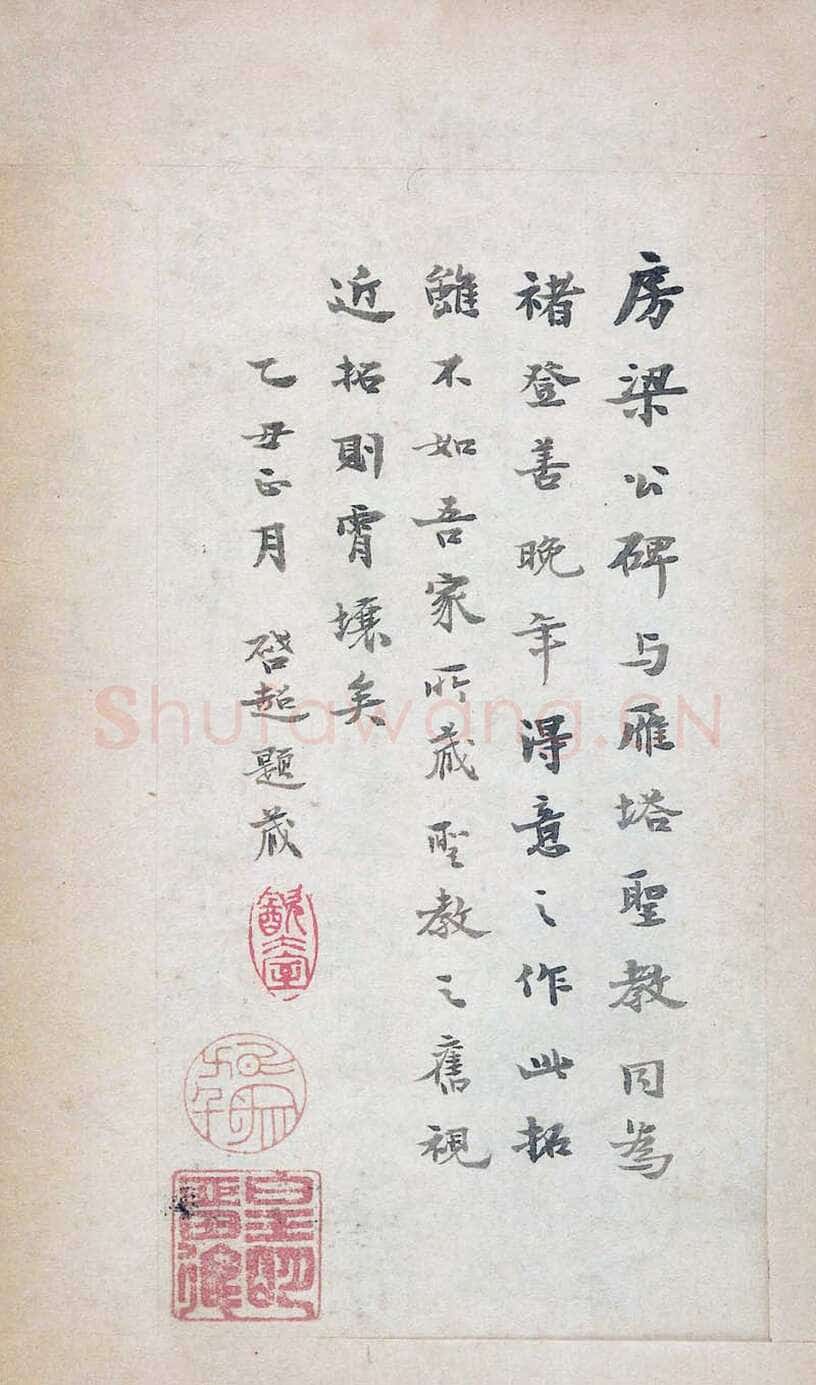 房梁公碑与雁塔聖教同為
褚登善晚年得意之作此拓
雖不如吾家所藏聖教之舊視
近拓則霄壤矣
乙丑正月 啓超題藏
Shufawang.CN